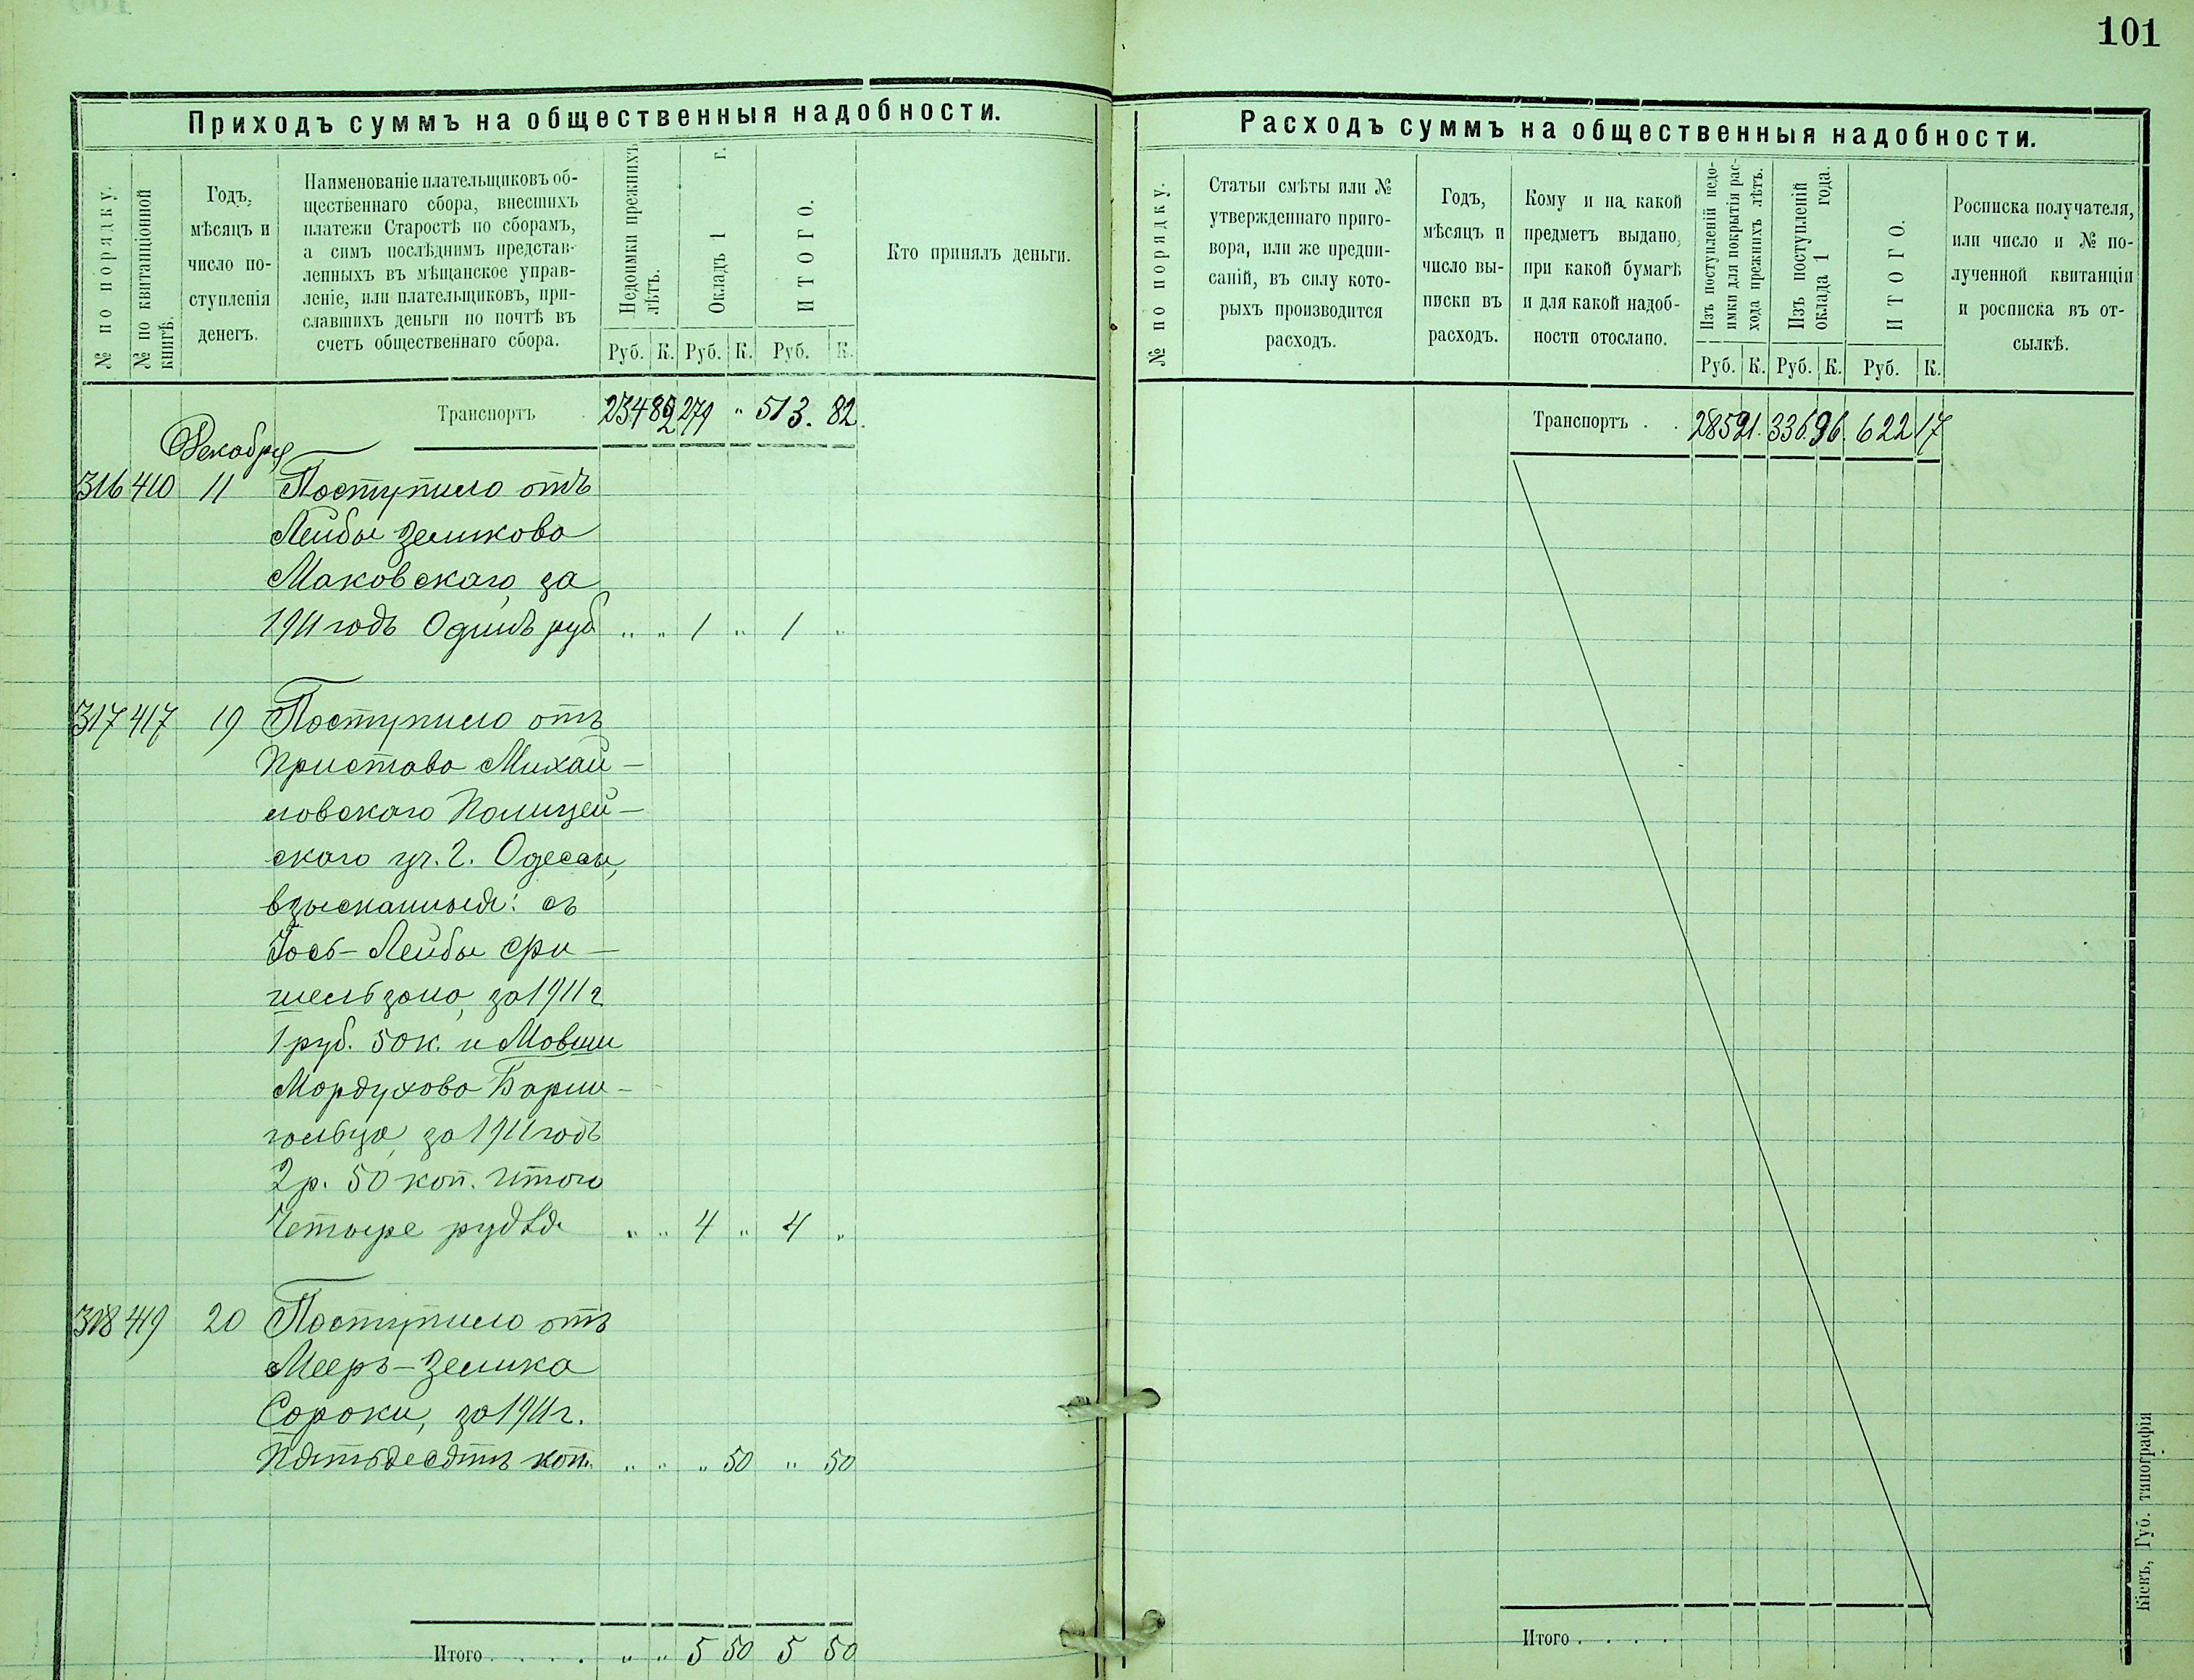 101
Приходъ суммъ на общественныя надобности.
№ по порядку.
№ по квитанціонной книгѣ.
Годъ,
мѣсяцъ и
число по-
ступленія
денегъ.
Наименованіе плательщиковъ об-
щественнаго сбора, внесшихъ
платежи Старостѣ по сборамъ,
а симъ послѣднимъ представ-
ленныхъ въ мѣщанское управ-
леніе, или плательщиковъ, при-
славшихъ деньги по почтѣ въ
счетъ общественнаго сбора.
Недоимки прежнихъ
лѣтъ.
Окладъ 1 г.
ИТОГО.
Руб. К. Руб. К. Руб. К.
Кто принялъ деньги.
Транспортъ 234 82 279 " 513. 82.
Декабря
316 410 11 Поступило отъ
Лейбы Зеликова
Маковскаго, за
1911 годъ Одинъ руб " " 1 " 1 "
317 417 19 Поступило отъ
Пристава Михай-
ловскаго Полицей-
скаго уч. г. Одессы,
взысканныя: съ
Іось-Лейбы Фи-
шельзона, за 1911 г
1 руб. 50 к. и Мовши
Мордухова Барин-
гольца, за 1911 годъ
2 р. 50 коп. Итого
Четыре рубля " " 4 " 4 "
318 419 20 Поступило отъ
Мееръ-Зелика
Сороки, за 1911 г.
Пятьдесятъ коп. " " " 50 " 50
Итого . . . . " " 5 50 5 50
Расходъ суммъ на общественныя надобности.
№ по порядку.
Статьи смѣты или №
утвержденнаго приго-
вора, или же предпи-
саній, въ силу кото-
рыхъ производится
расходъ.
Годъ,
мѣсяцъ и
число вы-
писки въ
расходъ.
Кому и на какой
предметъ выдано,
при какой бумагѣ
и для какой надоб-
ности отослано.
Изъ поступленій недо-
имки для покрытія рас-
хода прежнихъ лѣтъ.
Изъ поступленій
оклада 1 года.
ИТОГО.
Руб. К. Руб. К. Руб. К.
Росписка получателя,
или число и № по-
лученной квитанціи
и росписка въ от-
сылкѣ.
Транспортъ . . 285 21. 336. 96. 622 17
Итого . . . .
Кіевъ, Губ. типографія